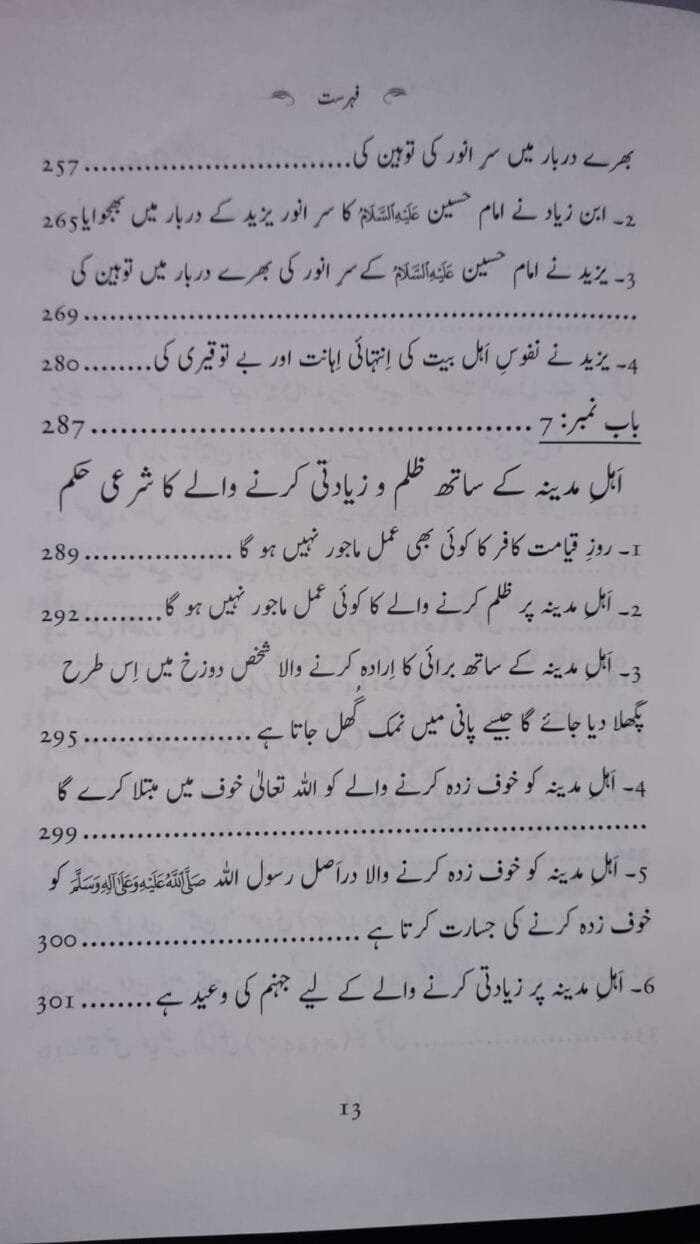 فہرست
بھرے دربار میں سرِ انور کی توہین کی...............................257
2۔ ابن زیاد نے امام حسین عَلَيْهِ السَّلَامُ کا سرِ انور یزید کے دربار میں بھجوایا265
3۔ یزید نے امام حسین عَلَيْهِ السَّلَامُ کے سرِ انور کی بھرے دربار میں توہین کی
................................................................269
4۔ یزید نے نفوسِ اَہل بیت کی اِنتہائی اِہانت اور بے توقیری کی........280
باب نمبر: 7 ..................................................287
اَہلِ مدینہ کے ساتھ ظلم و زیادتی کرنے والے کا شرعی حکم
1۔ روزِ قیامت کافر کا کوئی بھی عمل ماجور نہیں ہو گا .................289
2۔ اَہلِ مدینہ پر ظلم کرنے والے کا کوئی عمل ماجور نہیں ہو گا.........292
3۔ اَہلِ مدینہ کے ساتھ برائی کا اِرادہ کرنے والا شخص دوزخ میں اِس طرح
پگھلا دیا جائے گا جیسے پانی میں نمک گُھل جاتا ہے ...................295
4۔ اَہلِ مدینہ کو خوف زدہ کرنے والے کو اللہ تعالیٰ خوف میں مبتلا کرے گا
................................................................299
5۔ اَہلِ مدینہ کو خوف زدہ کرنے والا دراَصل رسول اللہ صَلَّى اللهُ عَلَيْهِ وَعَلَىٰ آلِهِ وَسَلَّمَ کو
خوف زدہ کرنے کی جسارت کرتا ہے ................................300
6۔ اَہلِ مدینہ پر زیادتی کرنے والے کے لیے جہنم کی وعید ہے ........301
13